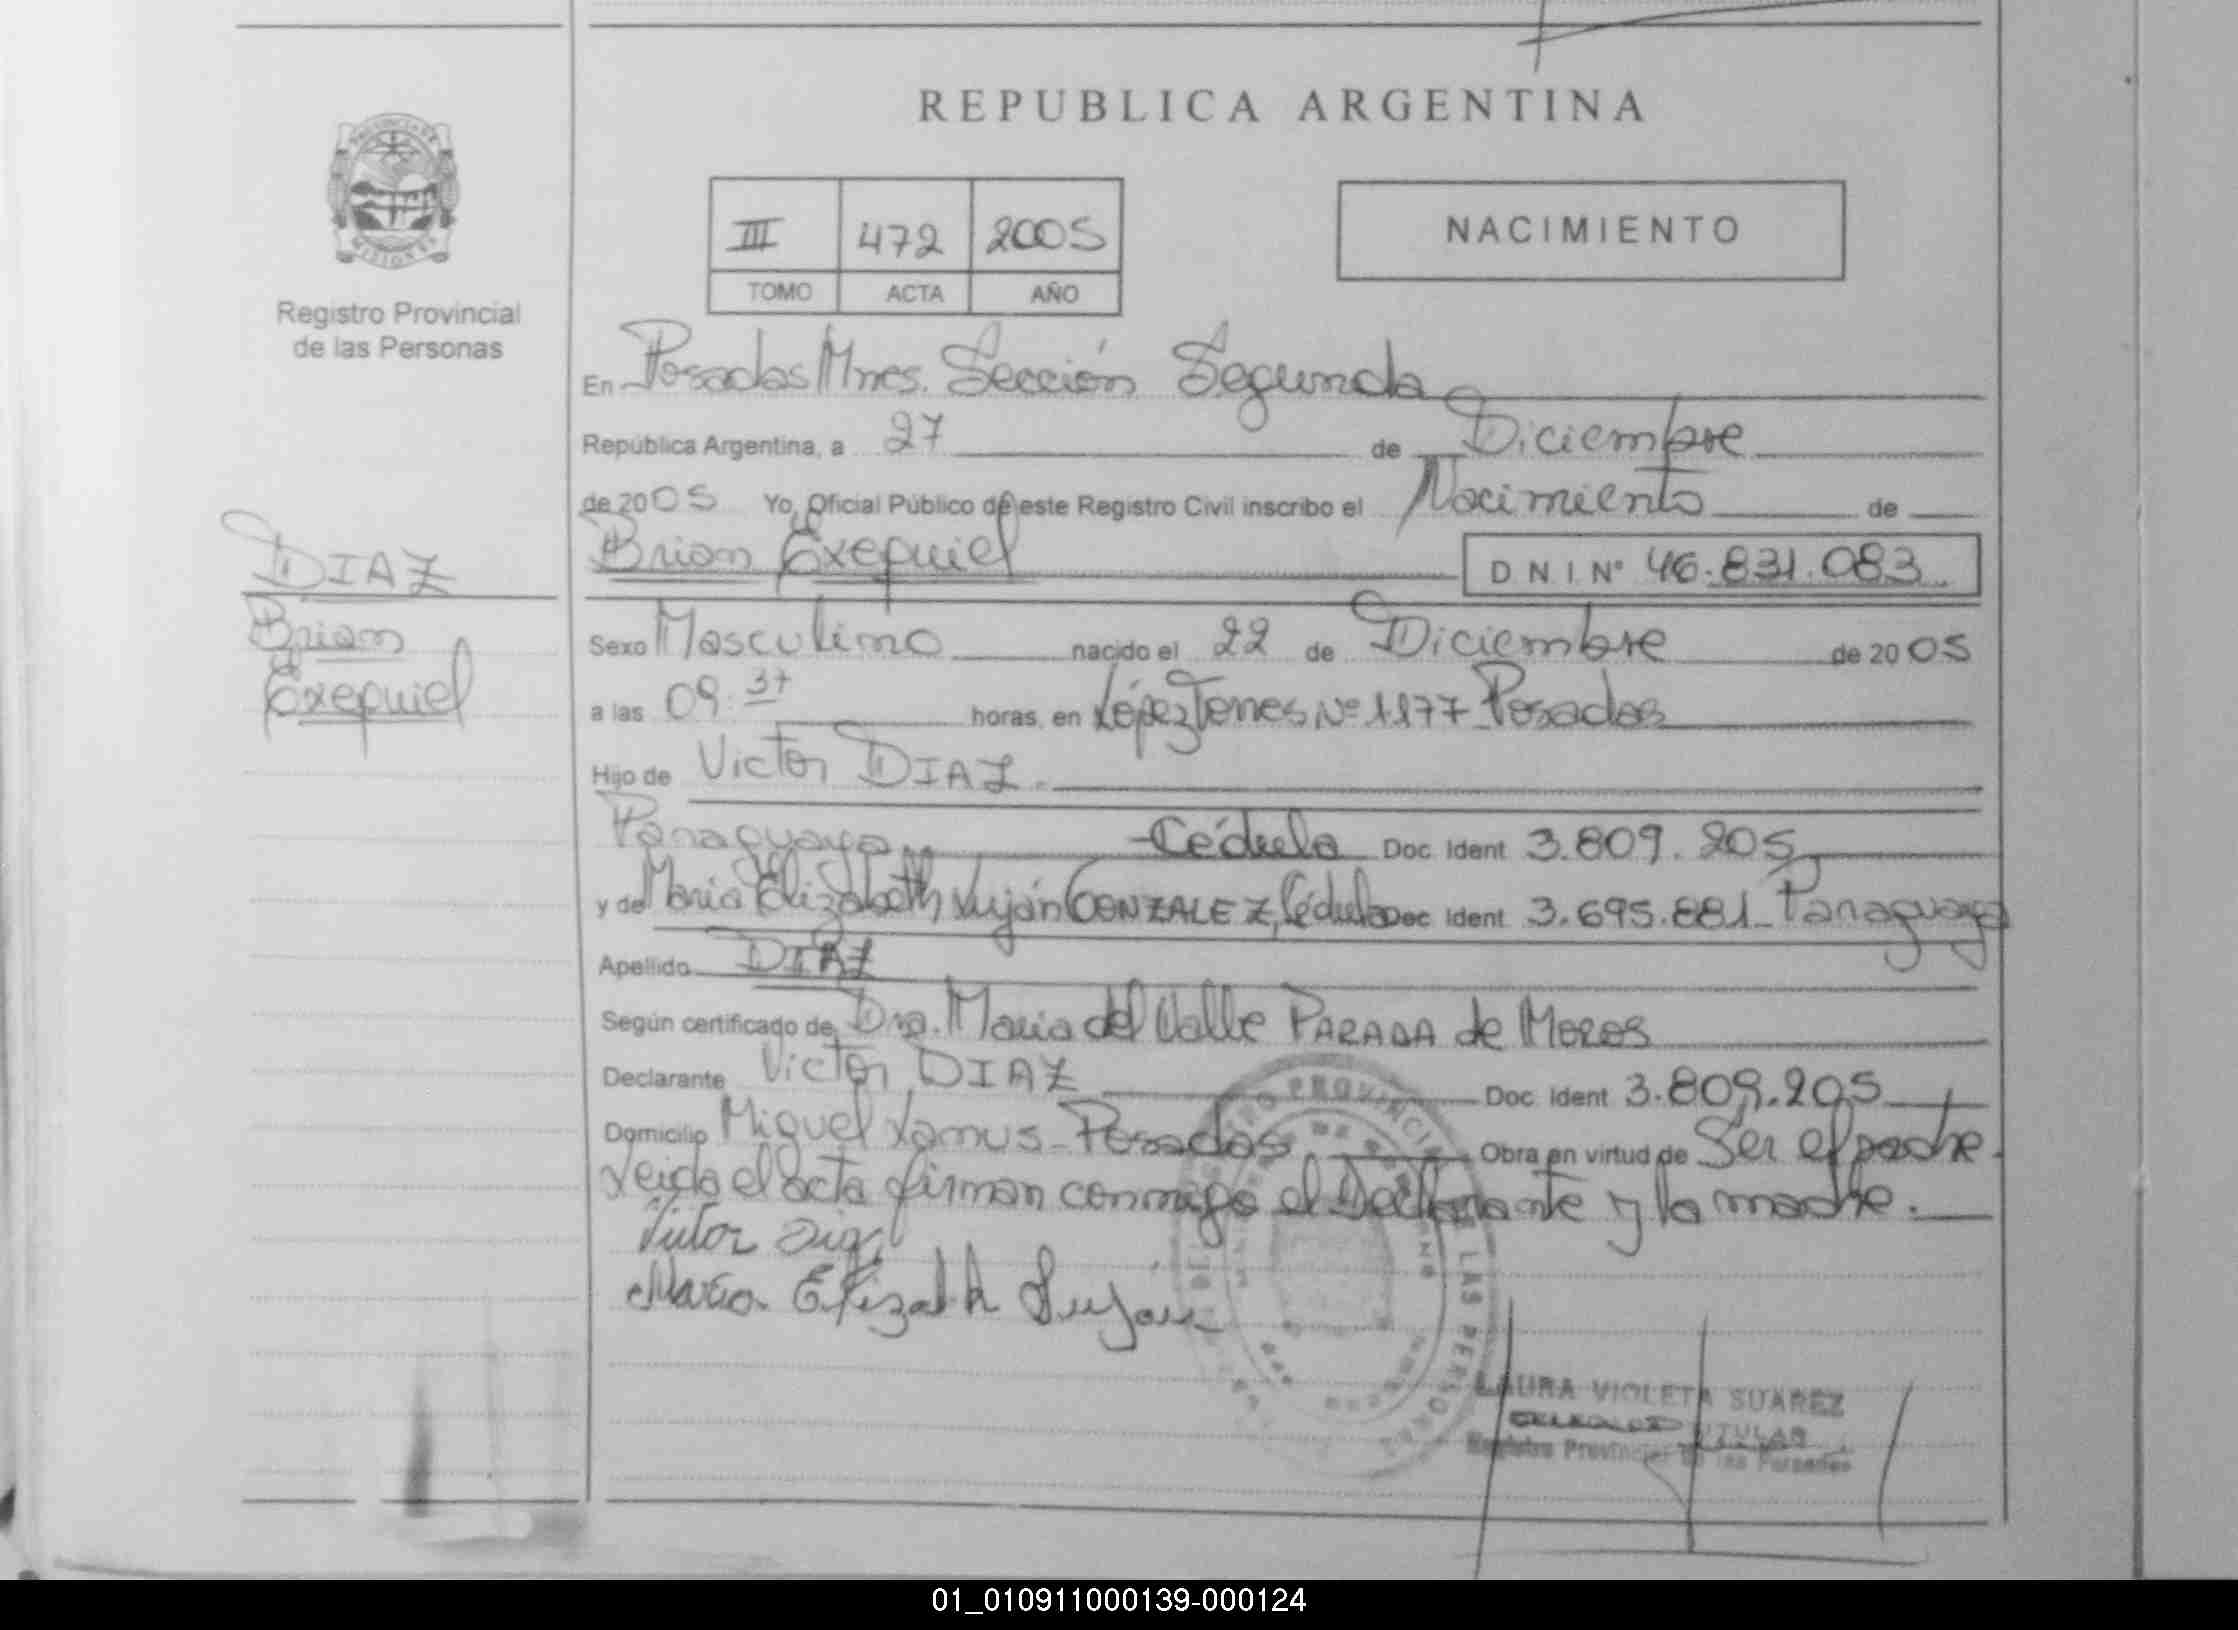 REPUBLICA ARGENTINA
PROVINCIA DE
MISIONES
Registro Provincial
de las Personas
III 472 2005
TOMO ACTA AÑO
NACIMIENTO
En Posadas Mnes. Sección Segunda
República Argentina, a 27 de Diciembre
de 2005 Yo, Oficial Público de este Registro Civil inscribo el Nacimiento de
DIAZ
Brian
Exequiel
Brian Exequiel DNI Nº 46.831.083
Sexo Masculino nacido el 22 de Diciembre de 2005
a las 09:37 horas, en López Torres Nº 1177 Posadas
Hijo de Victor DIAZ.
Paraguaya Cédula Doc. Ident 3.809.205
y de Maria Elizabeth Luján GONZALEZ, Cédula Doc Ident 3.695.881 Paraguaya
Apellido DIAZ
Según certificado de Dra. Maria del Valle PARADA de MOROS
Declarante Victor DIAZ Doc. Ident 3.809.205
Domicilio Miguel Lanus - Posadas Obra en virtud de Ser el padre.
Leida el acta firman conmigo el Declarante y la madre.
Victor Diaz
Maria Elizabeth Lujan
LAURA VIOLETA SUAREZ
TITULAR
Registro Provincial de las Personas
01_010911000139-000124